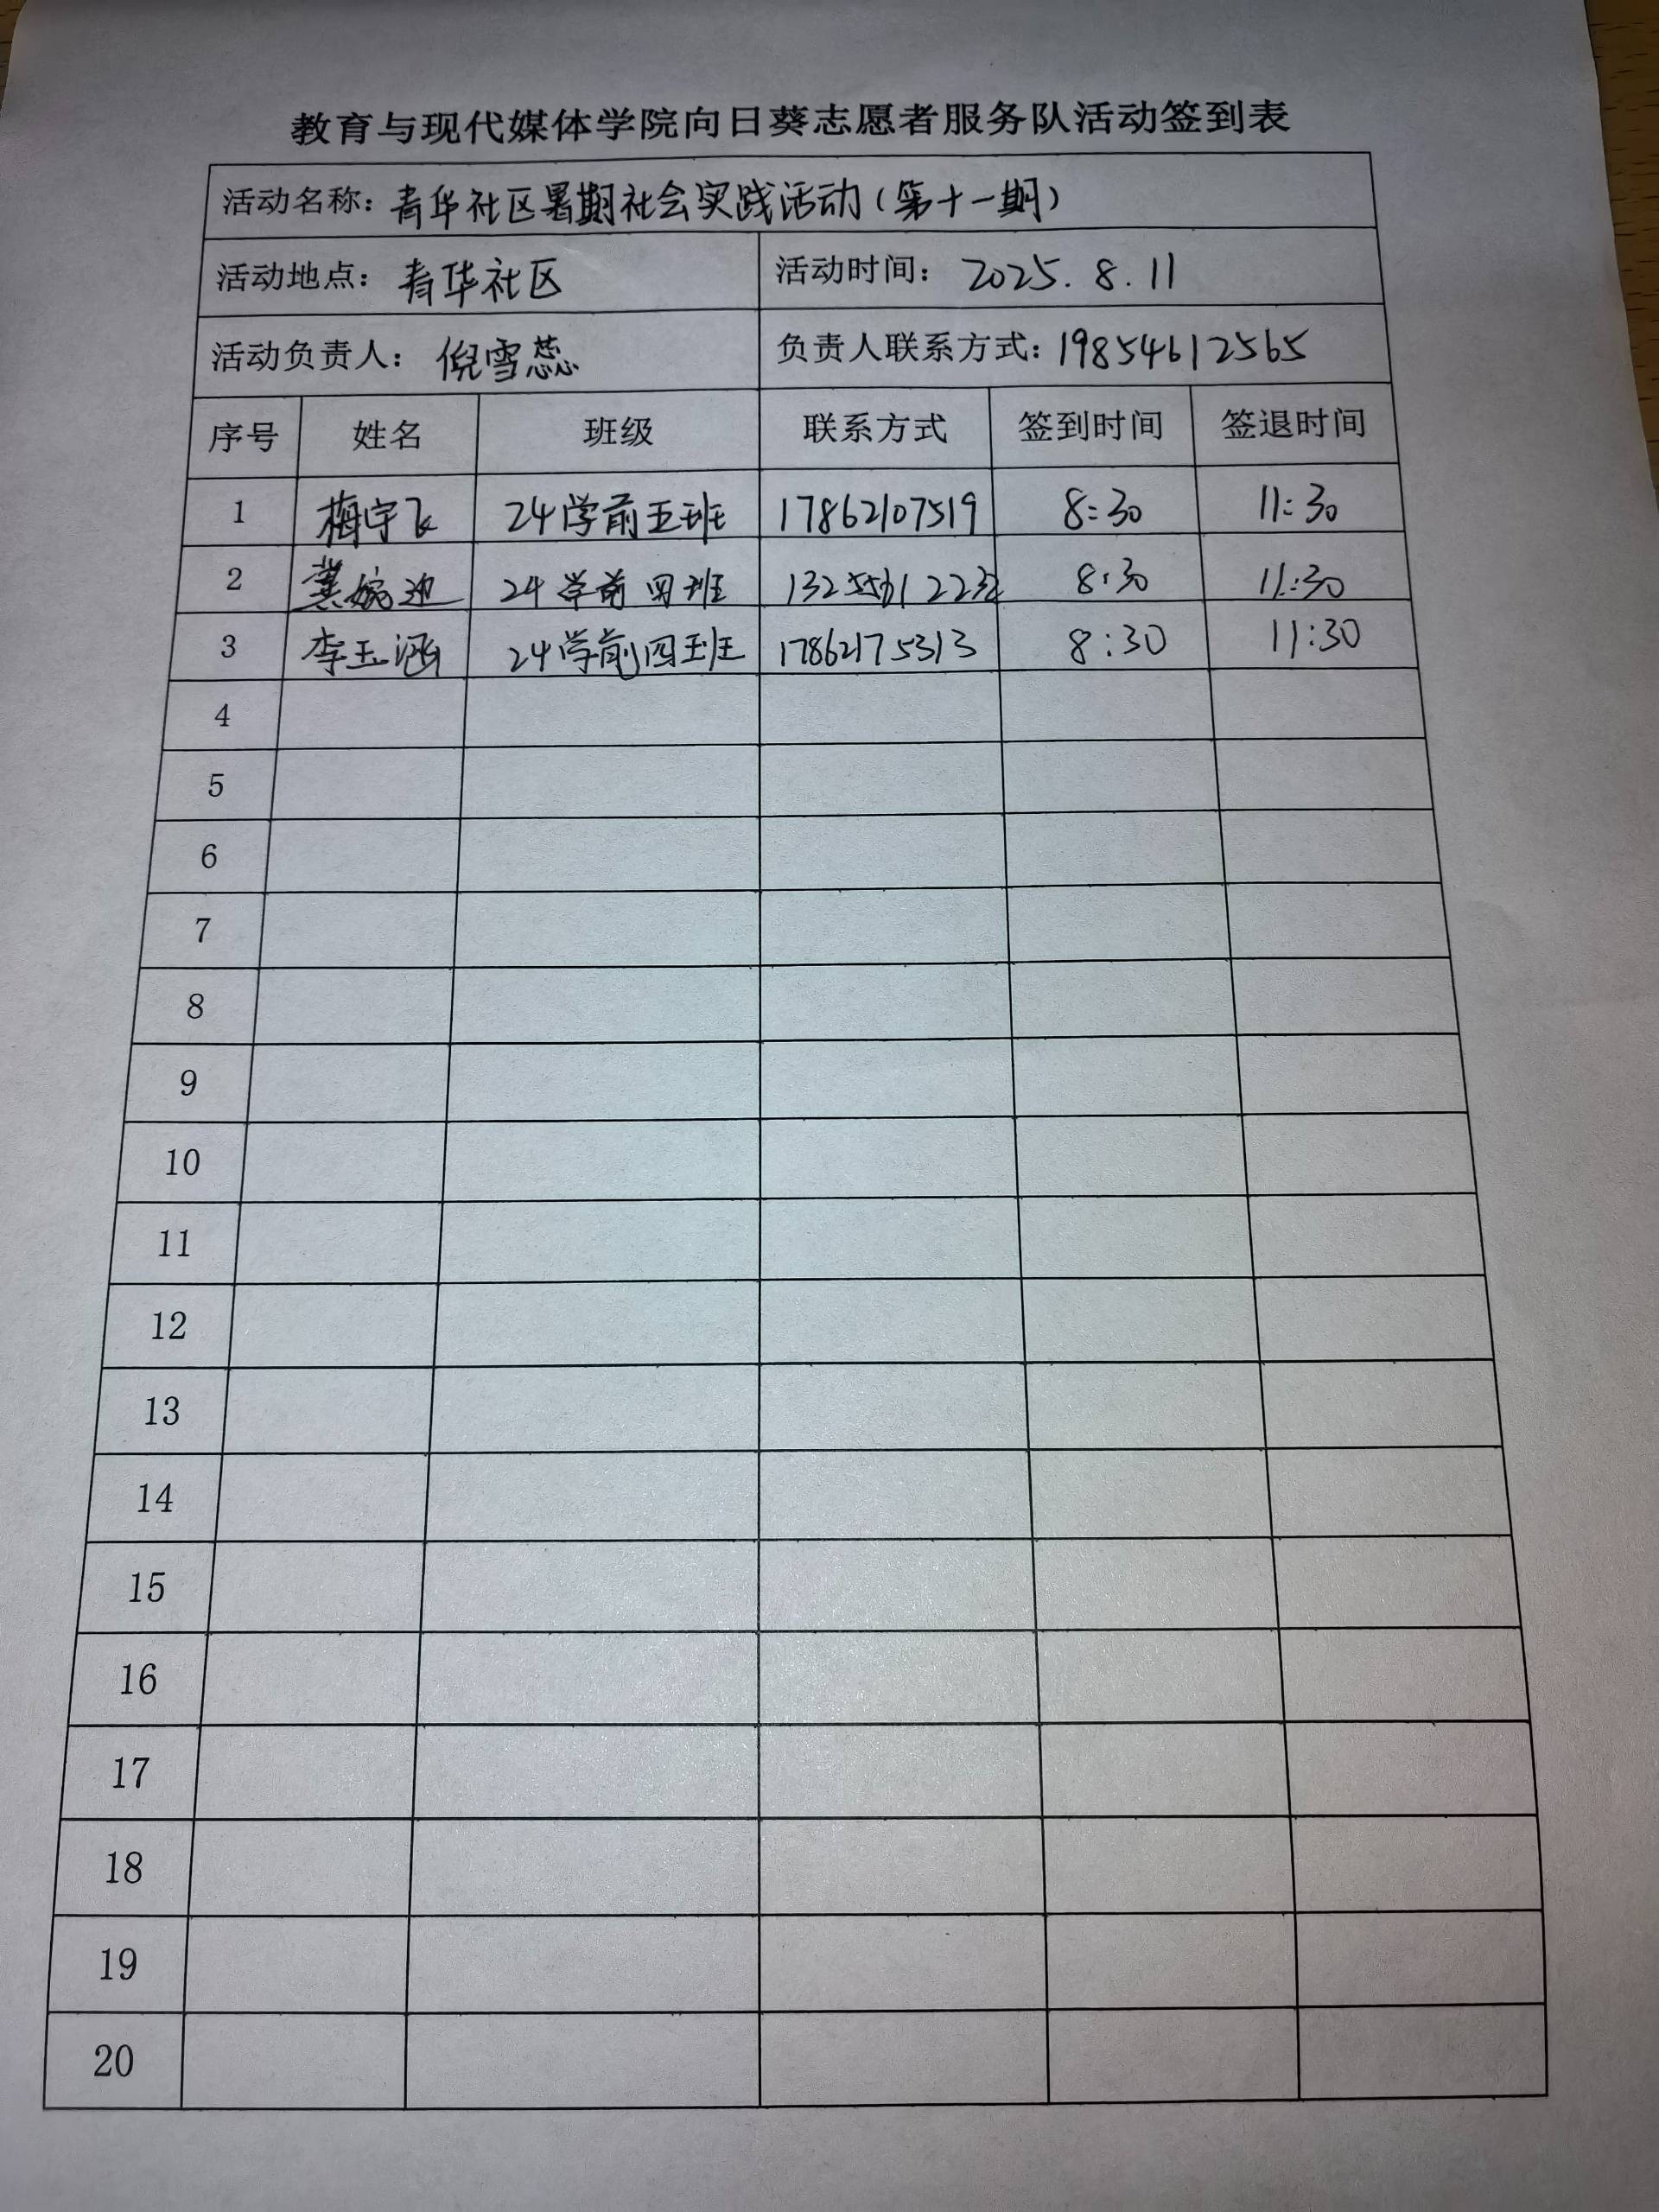 教育与现代媒体学院向日葵志愿者服务队活动签到表
活动名称：青华社区暑期社会实践活动（第十一期）
活动地点：青华社区 活动时间：2025.8.11
活动负责人：倪雪蕊 负责人联系方式：19854612565
序号 姓名 班级 联系方式 签到时间 签退时间
1 梅宇飞 24学前五班 17862107519 8:30 11:30
2 24学前四班 8:30 11:30
3 李玉涵 24学前四班 17862175313 8:30 11:30
4
5
6
7
8
9
10
11
12
13
14
15
16
17
18
19
20